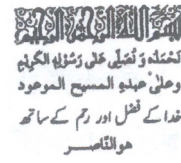 بسم الله الرحمن الرحيم
نحمده و نصلى على رسوله الكريم
وعلى عبده المسيح الموعود
خدا کے فضل اور رحم کے ساتھ
هو الناصر